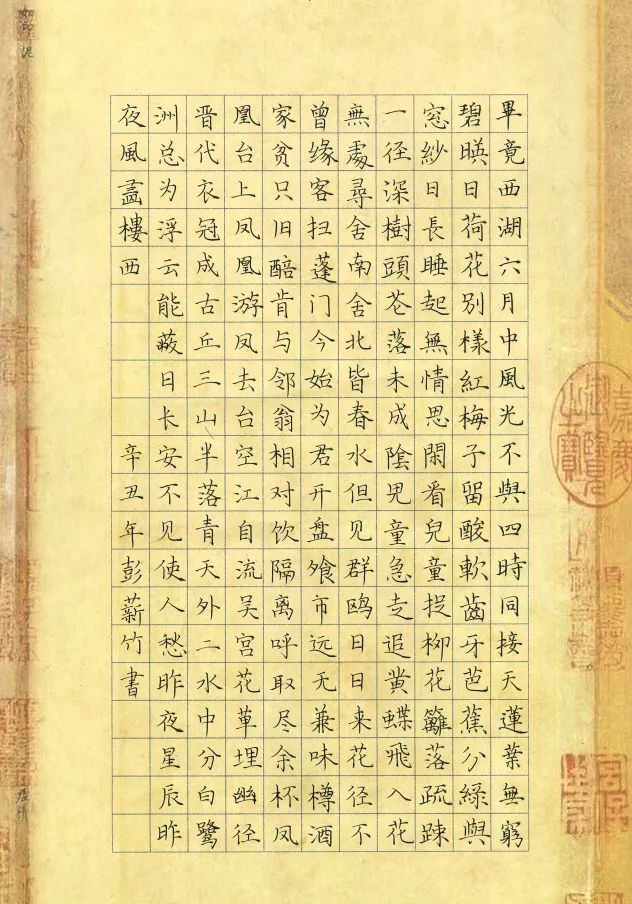 畢竟西湖六月中風光不與四時同接天蓮葉無窮
碧暎日荷花別樣紅梅子留酸軟齒牙芭蕉分綠與
窓紗日長睡起無情思閑看兒童捉柳花籬落疏踈
一徑深樹頭花落未成陰兒童急走追黄蝶飛入花
無處尋舍南舍北皆春水但見群鸥日日来花径不
曾缘客扫蓬门今始为君开盘飧市远无兼味樽酒
家贫只旧醅肯与邻翁相对饮隔离呼取尽余杯凤
凰台上凤凰游凤去台空江自流吴宫花草埋幽径
晋代衣冠成古丘三山半落青天外二水中分白鹭
洲总为浮云能蔽日长安不见使人愁昨夜星辰昨
夜風畫樓西
辛丑年彭薪竹書